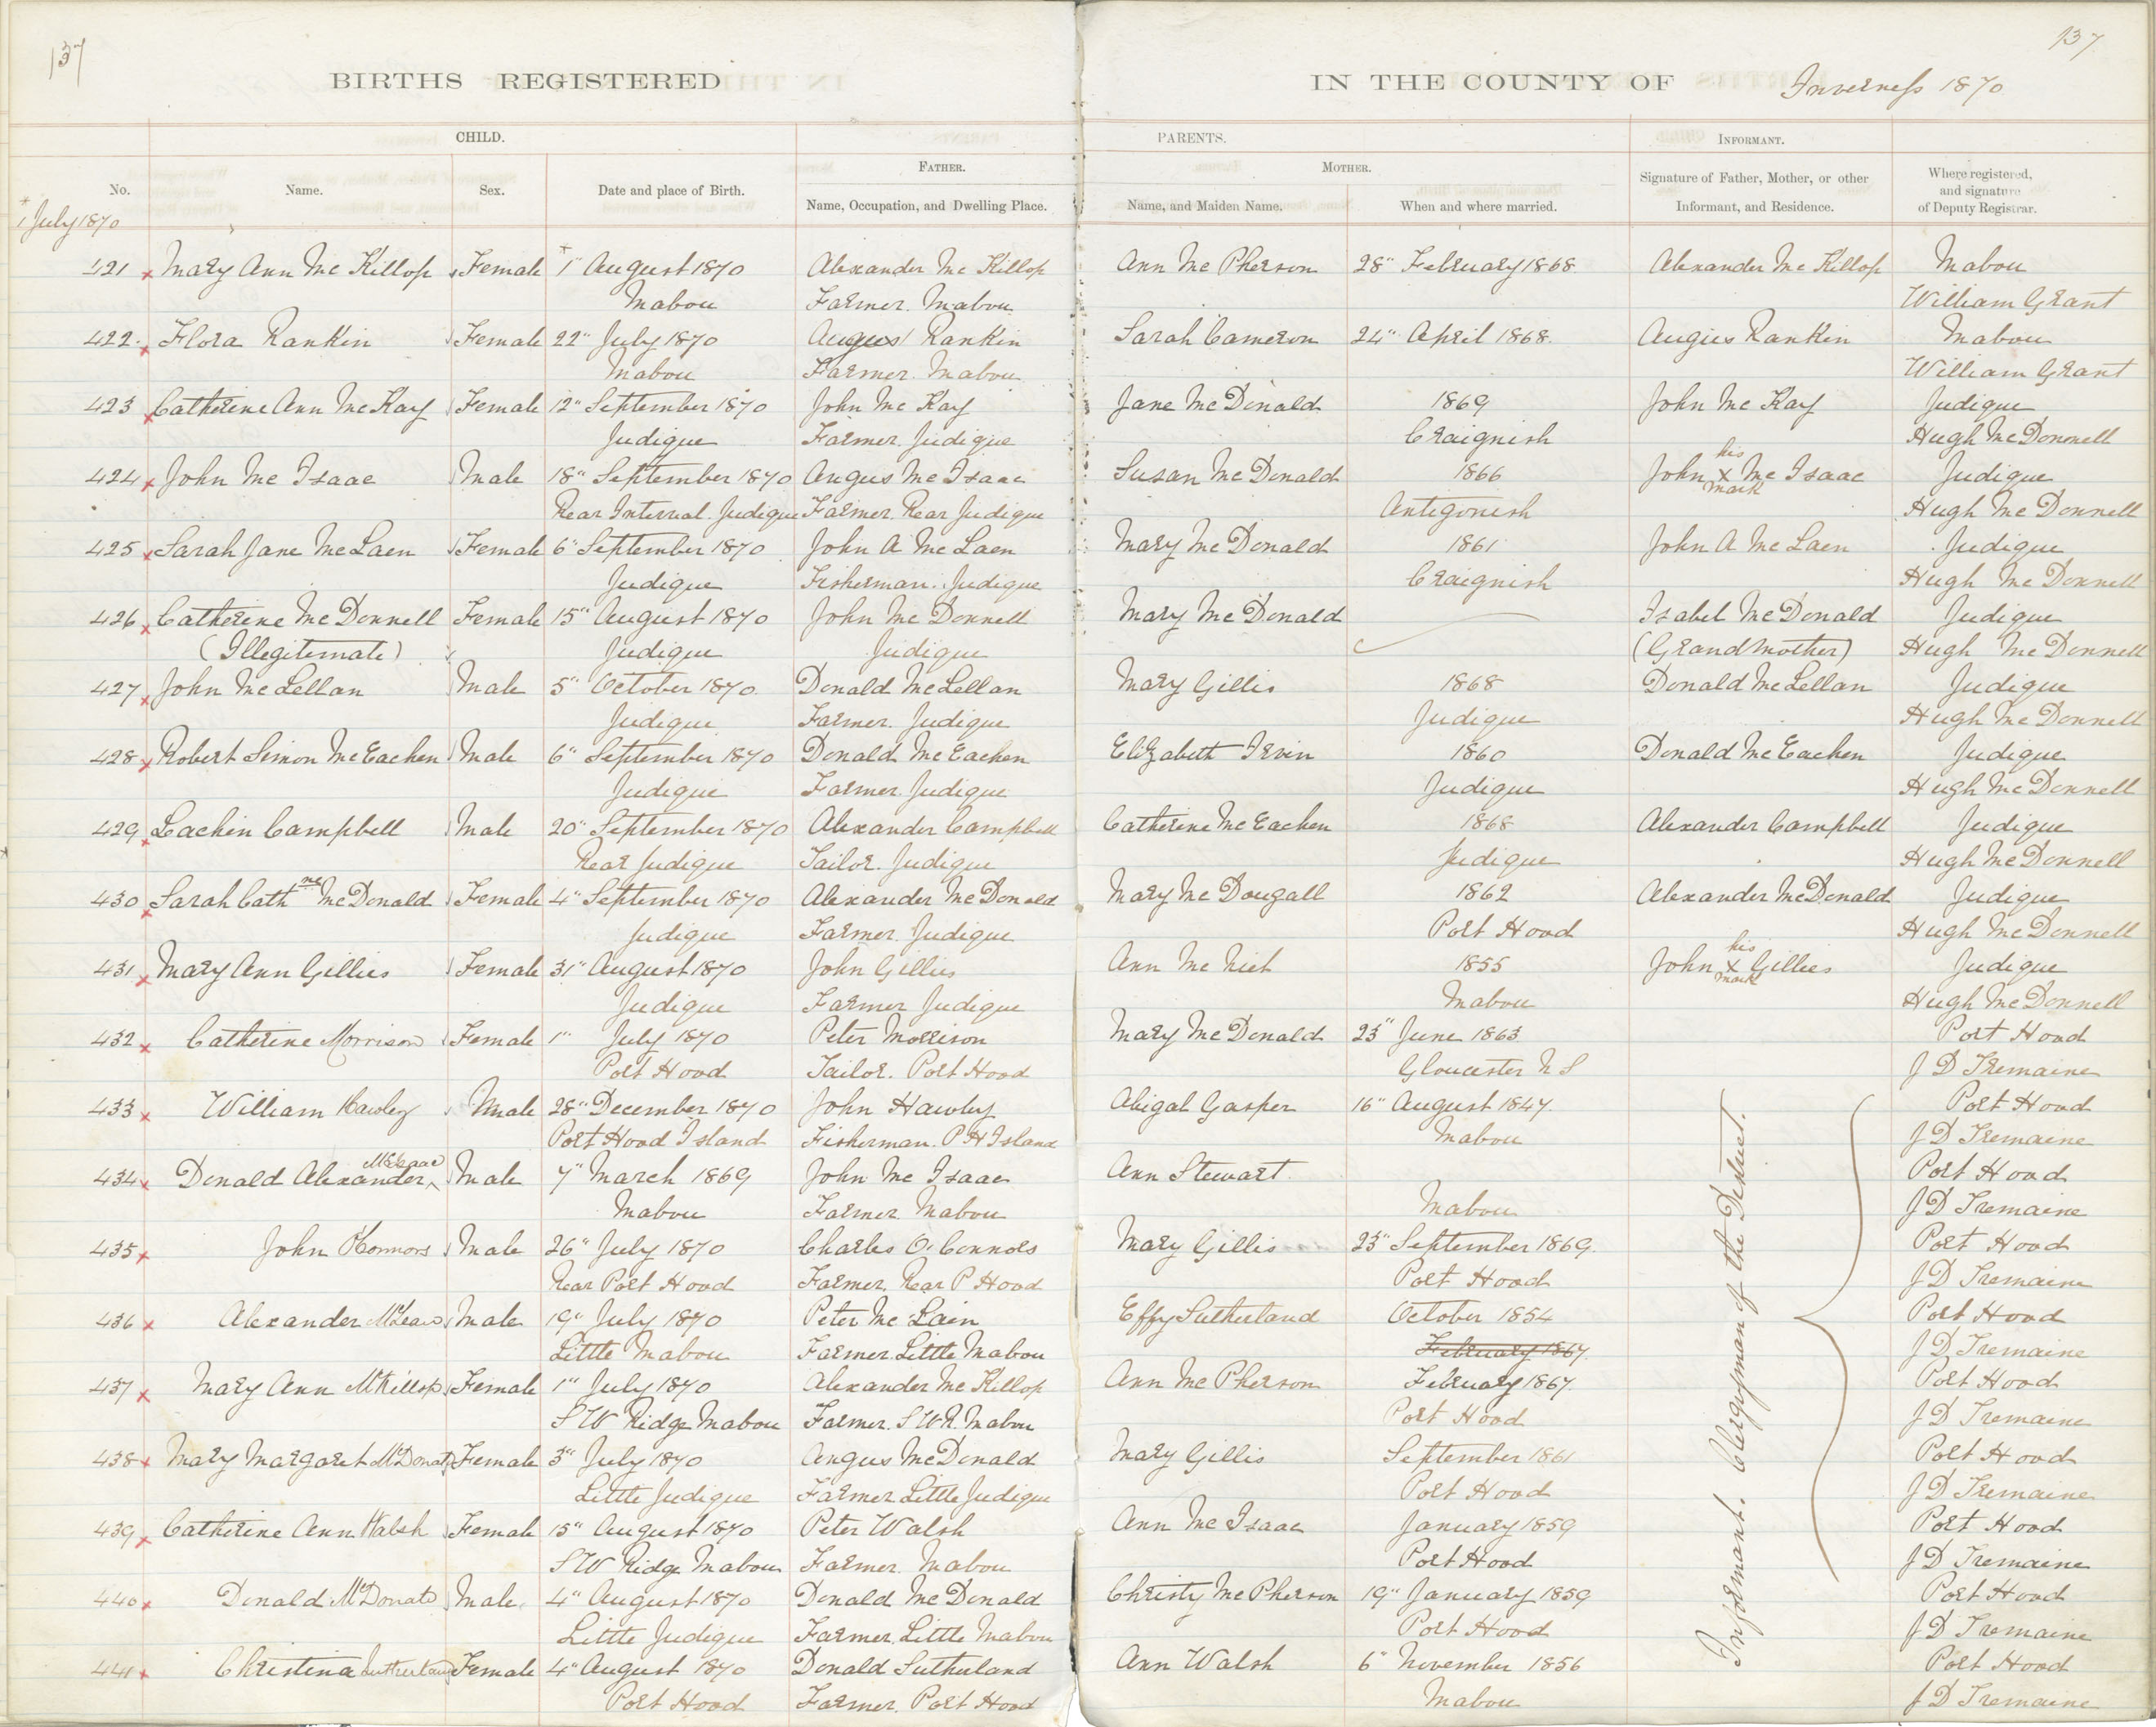 137
137
BIRTHS REGISTERED
IN THE COUNTY OF Inverness 1870
CHILD.
PARENTS.
INFORMANT.
FATHER.
MOTHER.
No.
Name.
Sex.
Date and place of Birth.
Name, Occupation, and Dwelling Place.
Name, and Maiden Name.
When and where married.
Signature of Father, Mother, or other Informant, and Residence.
Where registered, and signature of Deputy Registrar.
* 1 July 1870
421 x Mary Ann Mc Killop Female * 1" August 1870 Alexander Mc Killop Ann Mc Pherson 28" February 1868 Alexander Mc Killop Mabou
Mabou Farmer. Mabou William Grant
422 x Flora Rankin Female 22" July 1870 Angus Rankin Sarah Cameron 24" April 1868. Angus Rankin Mabou
Mabou Farmer. Mabou William Grant
423 x Catherine Ann Mc Kay Female 12" September 1870 John Mc Kay Jane Mc Donald 1869 John Mc Kay Judique
Judique Farmer. Judique Craignish Hugh Mc Donnell
424 x John Mc Isaac Male 18" September 1870 Angus Mc Isaac Susan Mc Donald 1866 John his x mark Mc Isaac Judique
Rear Interval. Judique Farmer. Rear Judique Antigonish Hugh Mc Donnell
425 x Sarah Jane Mc Laen Female 6" September 1870 John A Mc Laen Mary Mc Donald 1861 John A Mc Laen Judique
Judique Fisherman. Judique Craignish Hugh Mc Donnell
426 x Catherine Mc Donnell Female 15" August 1870 John Mc Donnell Mary Mc Donald Isabel Mc Donald Judique
(Illegitemate) Judique Judique (Grandmother) Hugh Mc Donnell
427 x John Mc Lellan Male 5" October 1870 Donald Mc Lellan Mary Gillis 1868 Donald Mc Lellan Judique
Judique Farmer. Judique Judique Hugh Mc Donnell
428 x Robert Simon Mc Eachen Male 6" September 1870 Donald Mc Eachen Elizabeth Irvin 1860 Donald Mc Eachen Judique
Judique Farmer. Judique Judique Hugh Mc Donnell
429 x Lachin Campbell Male 20" September 1870 Alexander Campbell Catherine Mc Eachen 1868 Alexander Campbell Judique
Rear Judique Tailor. Judique Judique Hugh Mc Donnell
430 x Sarah Cath ne Mc Donald Female 4" September 1870 Alexander Mc Donald Mary Mc Dougall 1862 Alexander Mc Donald Judique
Judique Farmer. Judique Port Hood Hugh Mc Donnell
431 x Mary Ann Gillies Female 31" August 1870 John Gillies Ann Mc 1855 John his x mark Gillies Judique
Judique Farmer Judique Mabou Hugh Mc Donnell
432 x Catherine Morrison Female 1" July 1870 Peter Morrison Mary Mc Donald 23" June 1863 Port Hood
Port Hood Tailor. Port Hood Gloucester N S J D Tremaine
433 x William Hawley Male 28" December 1870 John Hawley Abigal Gasper 16" August 1847. Port Hood
Port Hood Island Fisherman. P H Island Mabou J D Tremaine
434 x Donald Alexander McIsaac Male 7" March 1869 John Mc Isaac Ann Stewart Port Hood
Mabou Farmer. Mabou Mabou J D Tremaine
435 x John O'Connors Male 26" July 1870 Charles O'Connors Mary Gillis 23" September 1869. Port Hood
Rear Port Hood Farmer. Rear P Hood Port Hood J D Tremaine
436 x Alexander McLean Male 19" July 1870 Peter Mc Lain Effy Sutherland October 1854 Port Hood
Little Mabou Farmer. Little Mabou February 1867. J D Tremaine
437 x Mary Ann McKillop Female 1" July 1870 Alexander Mc Killop Ann Mc Pherson February 1867. Port Hood
S W Ridge Mabou Farmer. S W R. Mabou Port Hood J D Tremaine
438 x Mary Margaret McDonald Female 3" July 1870 Angus Mc Donald Mary Gillis September 1861 Port Hood
Little Judique Farmer Little Judique Port Hood J D Tremaine
439 x Catherine Ann Walsh Female 15" August 1870 Peter Walsh Ann Mc Isaac January 1859 Port Hood
S W Ridge Mabou Farmer. Mabou Port Hood J D Tremaine
440 x Donald McDonald Male 4" August 1870 Donald Mc Donald Christy Mc Pherson 19" January 1859 Port Hood
Little Judique Farmer. Little Mabou Port Hood J D Tremaine
441 x Christina Sutherland Female 4" August 1870 Donald Sutherland Ann Walsh 6" November 1856 Port Hood
Port Hood Farmer. Port Hood Mabou J D Tremaine
Informant. Clergyman of the District.